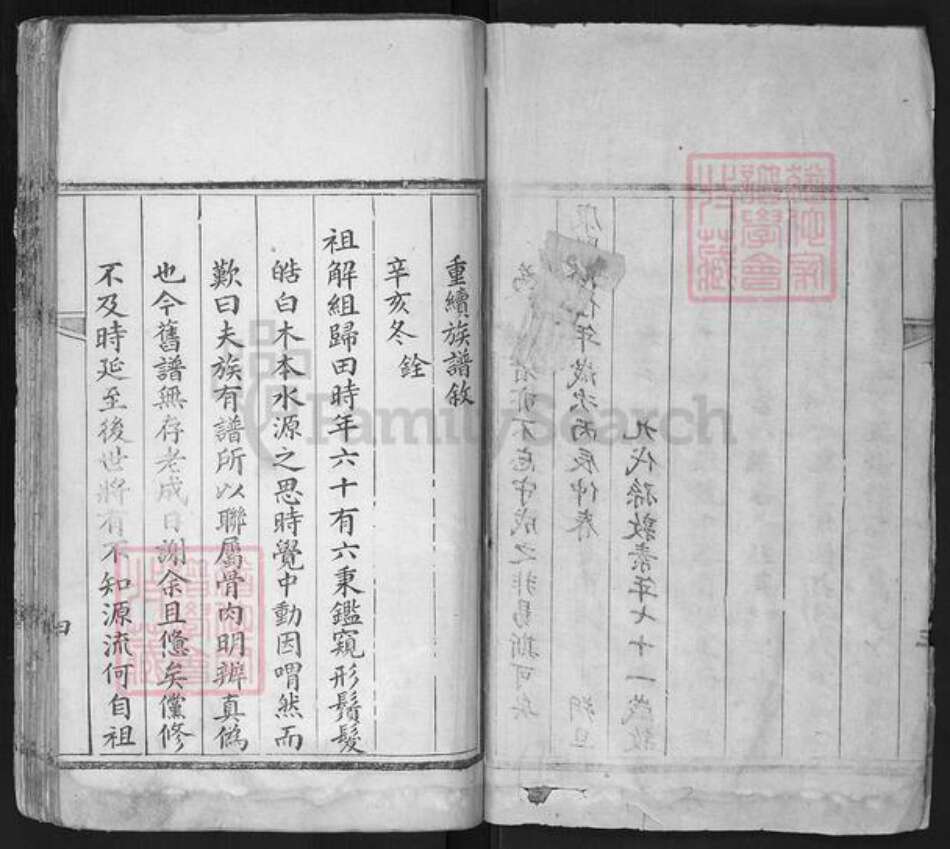 三
九代孫敦素年七十一歲敘
年歲次丙辰仲春 朔旦
者亦不忘守成之非易斯可矣
重續族譜敘
辛亥冬 銓
祖解組歸田時年六十有六秉鑑窺形鬚髮
皓白木本水源之思時覺中動因喟然而
歎曰夫族有譜所以聯屬骨肉明辨真偽
也今舊譜無存老成日謝余且憊矣儻修
不及時延至後世將有不知源流何自祖
四
FamilySearch